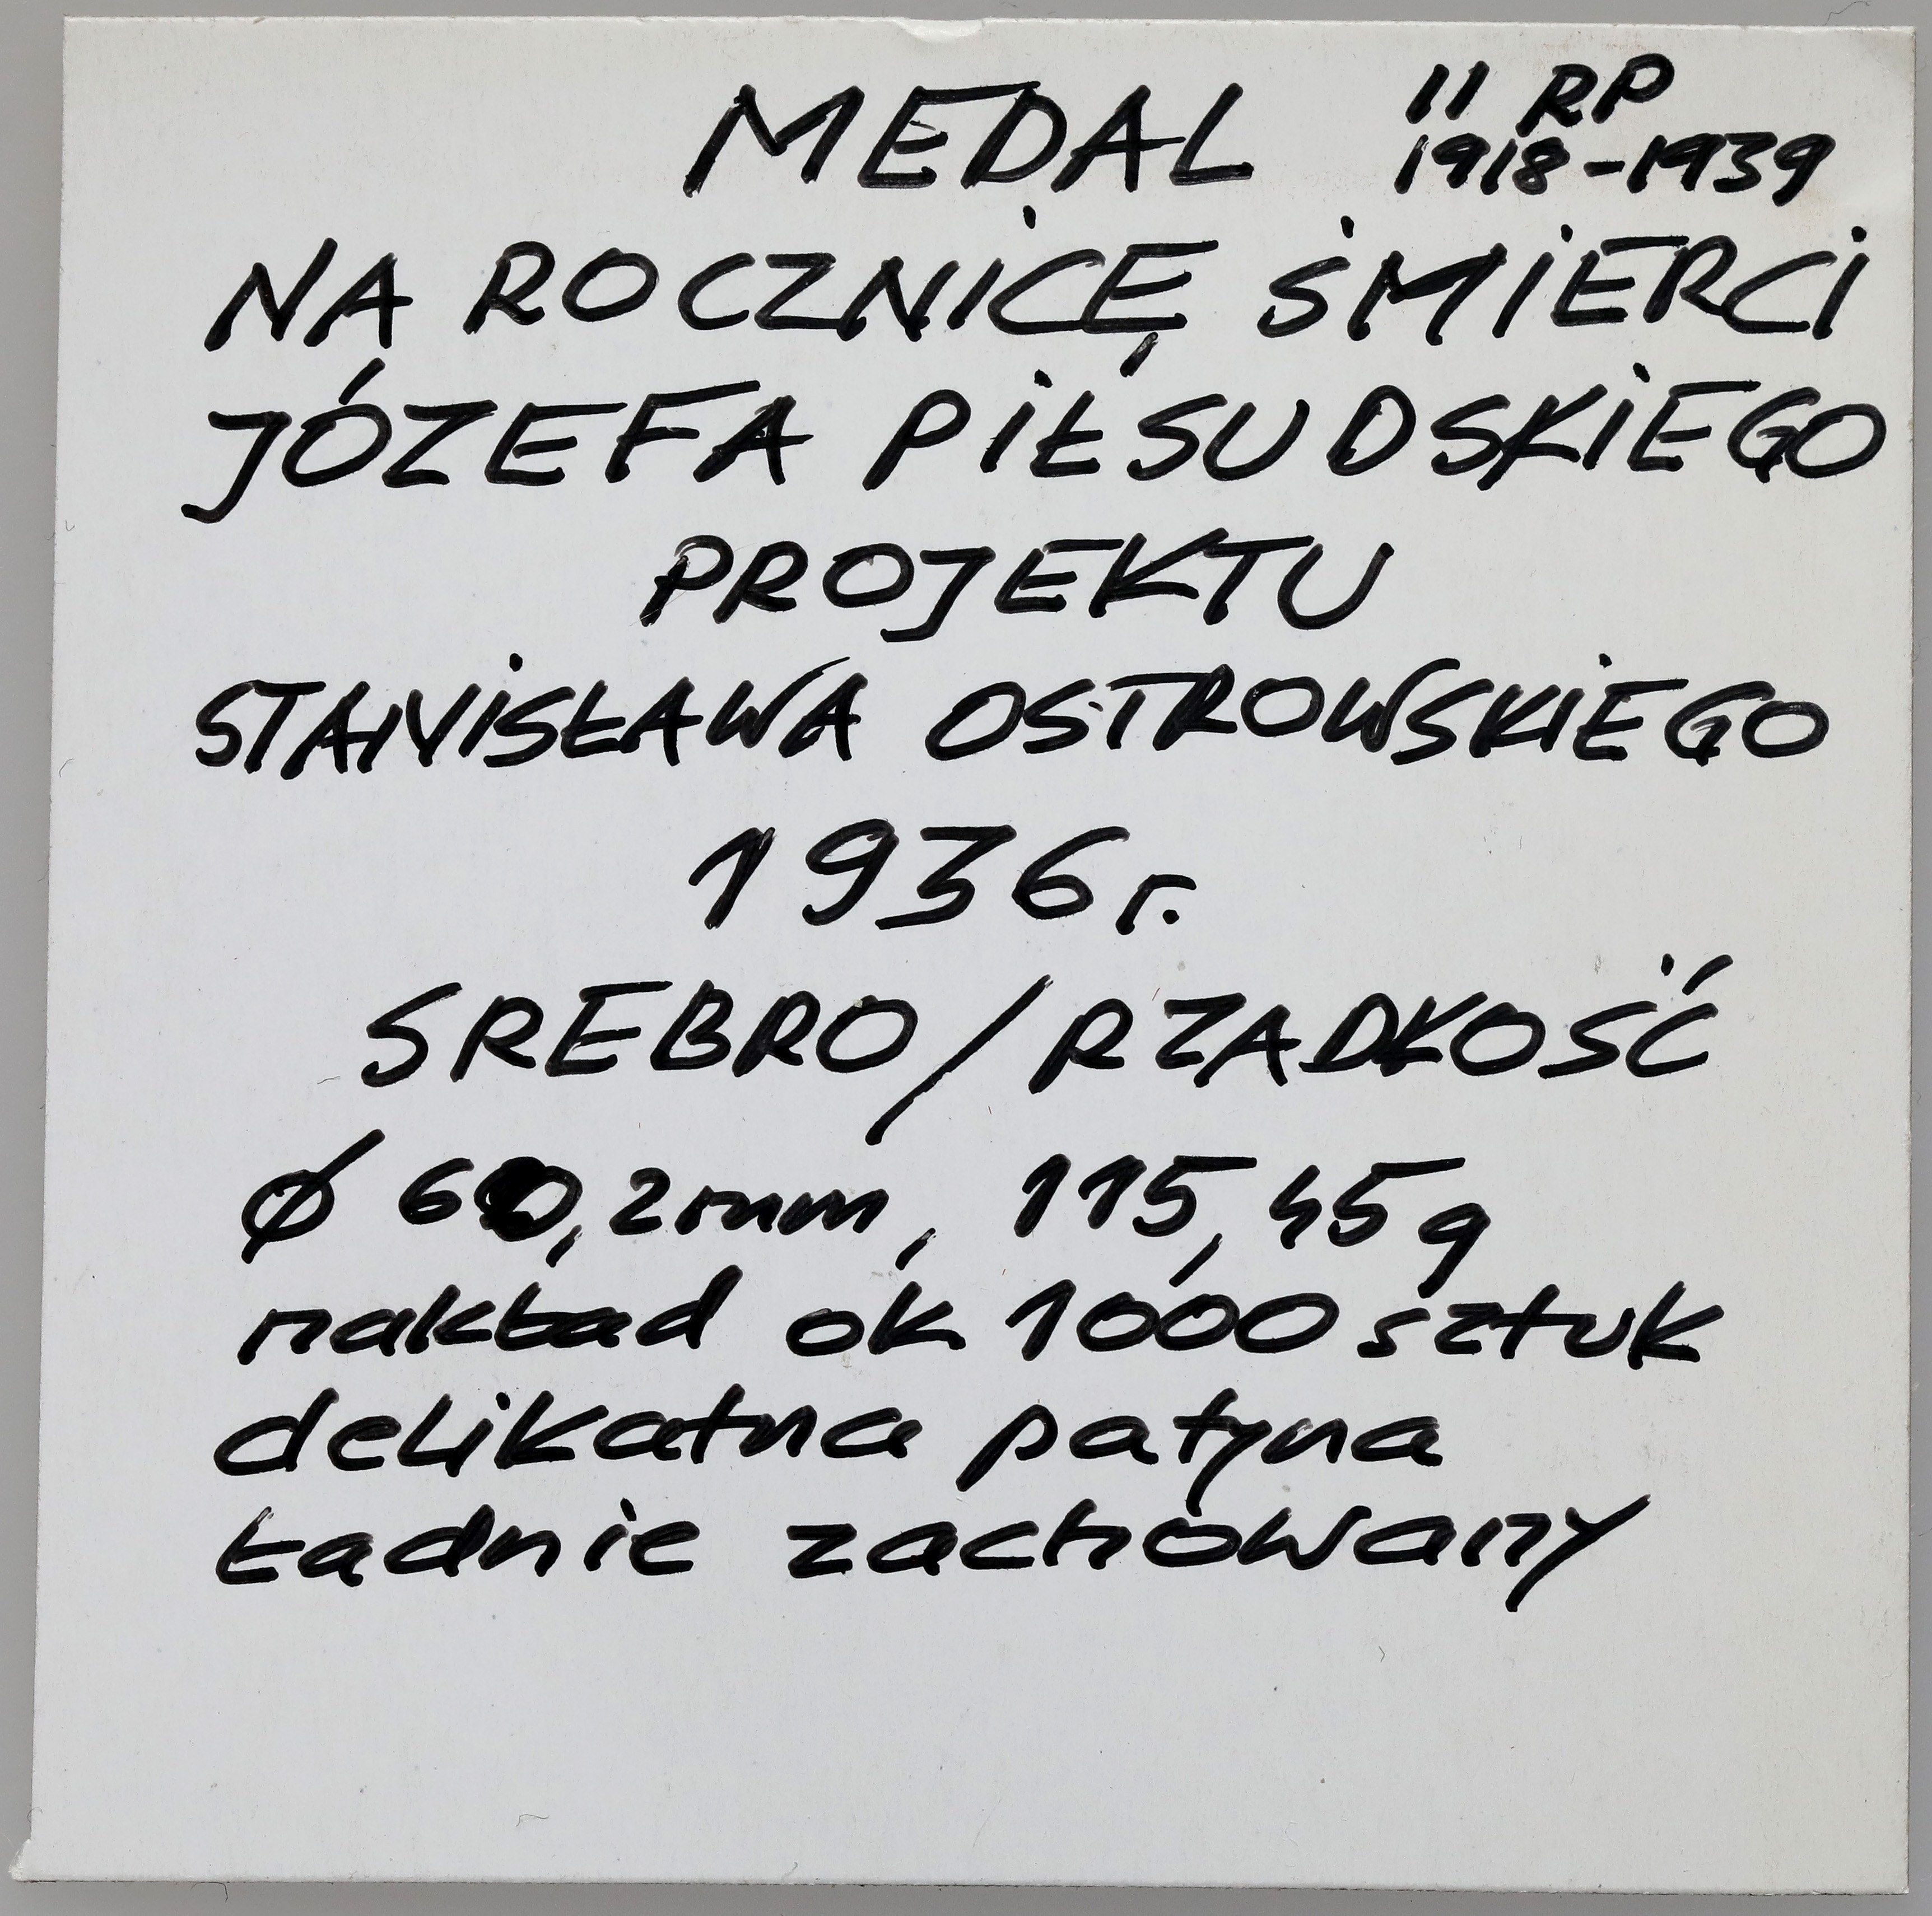 MEDAL II RP
1918-1939
NA ROCZNICĘ ŚMIERCI
JÓZEFA PIŁSUDSKIEGO
PROJEKTU
STANISŁAWA OSTROWSKIEGO
1936r.
SREBRO/RZADKOŚĆ
Ø 60,2mm, 115,45g
nakład ok 1000 sztuk
delikatna patyna
ładnie zachowany